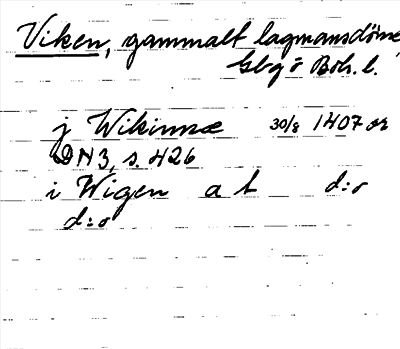 Viken, gammalt lagmansdöme,
Gbg o Boh. l.
j Wikinnæ 30/8 1407 or
DN 3, s. 426
i Wigen a t d:o
d:o